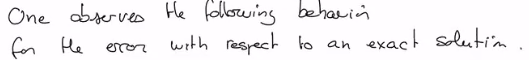 One observes the following behavior
for the error with respect to an exact solution.